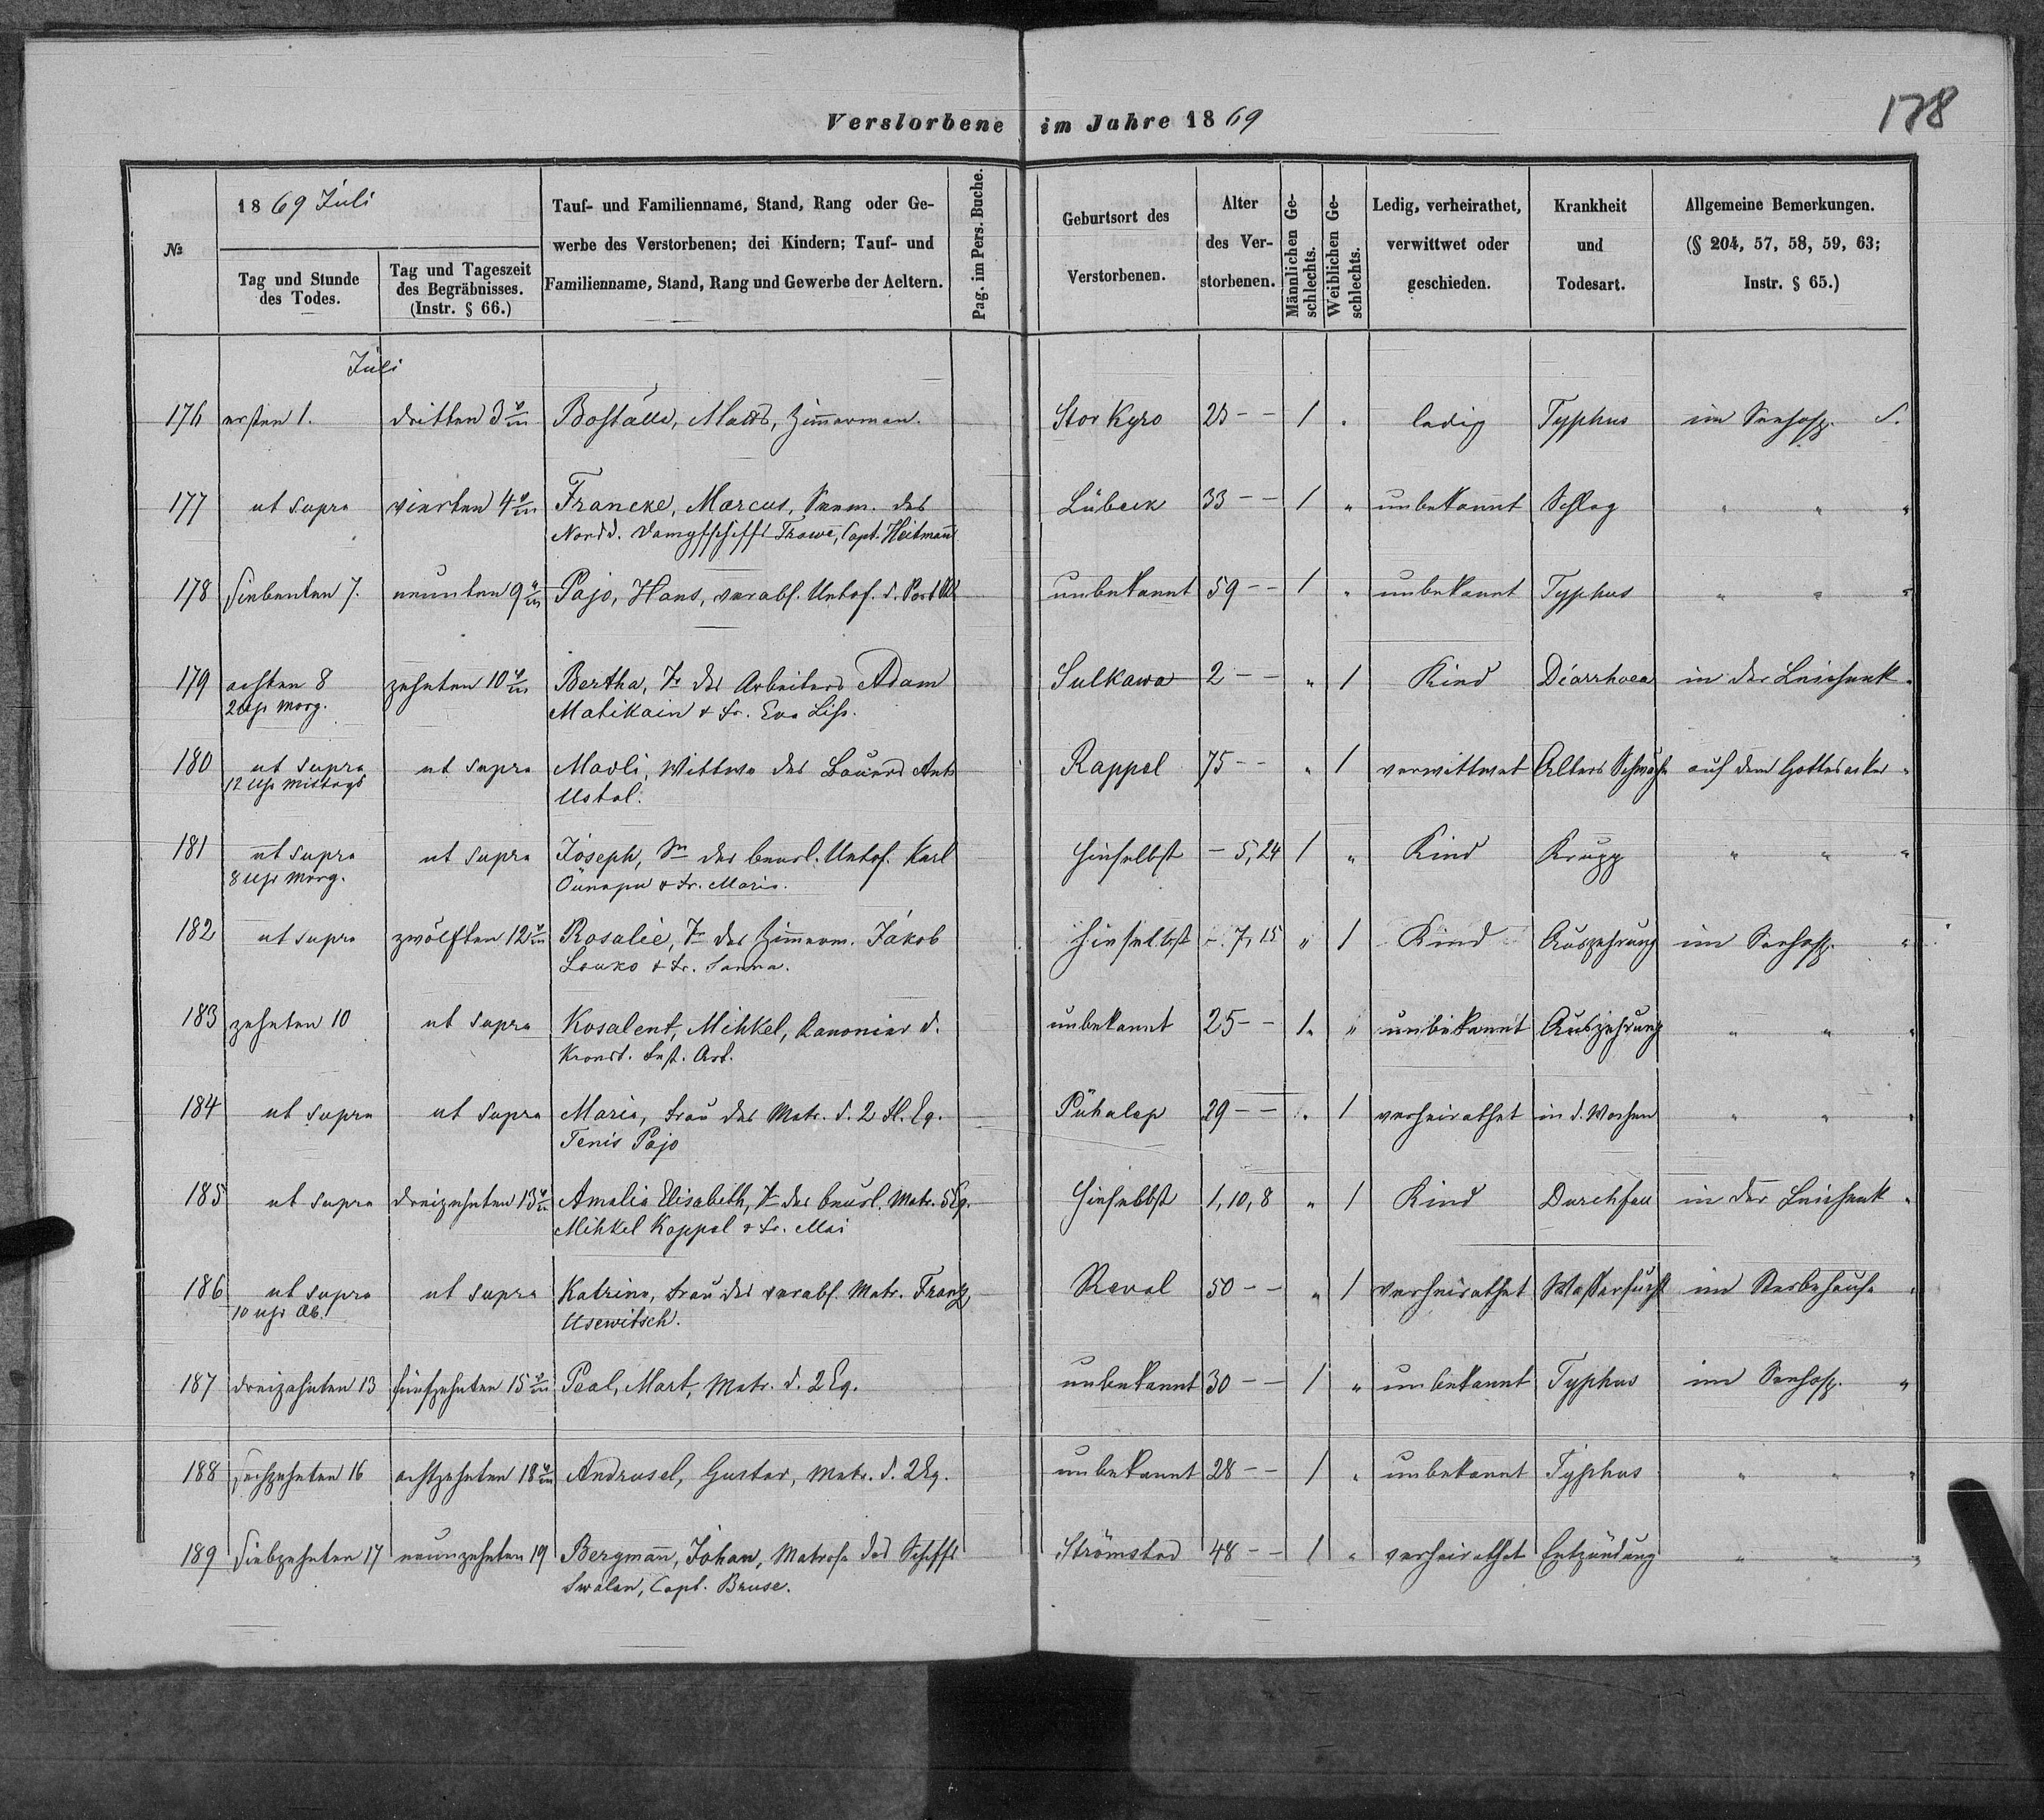 178
Verstorbene im Jahre 1869
№
1869 Juli
Tag und Stunde des Todes.
Tag und Tageszeit des Begräbnisses. (Instr. § 66.)
Tauf- und Familienname, Stand, Rang oder Ge-
werbe des Verstorbenen; dei Kindern; Tauf- und
Familienname, Stand, Rang und Gewerbe der Aeltern.
Pag. im Pers. Buche.
Geburtsort des Verstorbenen.
Alter des Ver-storbenen.
Männlichen Ge-schlechts.
Weiblichen Ge-schlechts.
Ledig, verheirathet, verwittwet oder geschieden.
Krankheit und Todesart.
Allgemeine Bemerkungen. (§ 204, 57, 58, 59, 63; Instr. § 65.)
Juli
176 ersten 1. dritten 3 Matts, Zimmerman. Stor Kyro 23 - - 1 " ledig Typhus im Seehosp. S.
177 ut supra vierten 4 Francke, Marcus, Seem. des Lübeck 33 - - 1 " unbekannt Schlag " " "
Nordd. Dampfschiffs Trawe, Capt. Heitmann
178 siebenten 7. neunten 9 Pajo, Hans, verabs. Untof. d. unbekannt 59 - - 1 " unbekannt Typhus " " "
179 achten 8 zehnten 10 Bertha, Tr des Arbeiters Adam Sulkawa 2 - - " 1 Kind Diarrhoea in der Leichenk "
2 Uhr Morg. Matikain & Fr. Eva Lis.
180 ut supra ut supra Madli, Wittwe des Bauers Ants Rappel 75 - - " 1 verwittwet Alters Schwäche auf dem Gottesacker "
12 Uhr Mittags Ustal.
181 ut supra ut supra Joseph, Sn des beurl. Untof. Karl hieselbst - 5, 24 1 " Kind Krupp " " "
8 Uhr Morg. Öunapu & Fr. Marie.
182 ut supra zwölften 12 Rosalie, Tr des Zimmerm. Jakob hieselbst - 7, 15 " 1 Kind Auszehrung im Seehosp. "
Louko & Fr. Sanna.
183 zehnten 10 ut supra Kosalent, Mihkel, Kanonier d. unbekannt 25 - - 1 " unbekannt Auszehrung " " "
Kronst. Fest. Art.
184 ut supra ut supra Marie, Frau des Matr. d. 2 Fl. Eq. Pühalep 29 - - " 1 verheirathet in d. Wochen " " "
Tenis Pajo
185 ut supra dreizehnten 13 Amalie Elisabeth, Tr des beurl. Matr. 5 Eq. hieselbst 1, 10, 8 " 1 Kind Durchfall in der Leichenk "
Mihkel Koppel & Fr. Mai
186 ut supra ut supra Katrina, Frau des verabs. Matr. Franz Reval 50 - - " 1 verheirathet Wassersucht im Sterbehause "
10 Uhr Ab. Usewitsch.
187 dreizehnten 13 fünfzehnten 15 Peal, Mart, Matr. d. 2 Eq. unbekannt 30 - - 1 " unbekannt Typhus im Seehosp. "
188 sechzehnten 16 achtzehnten 18 Andrusel, Gustav, Matr. d. 2 Eq. unbekannt 28 - - 1 " unbekannt Typhus " " "
189 siebzehnten 17 neunzehnten 19 Bergmann, Johan, Matrose des Schiffs Strömstad 48 - - 1 " verheirathet Entzündung " " "
Swalan, Capt. Bruse.